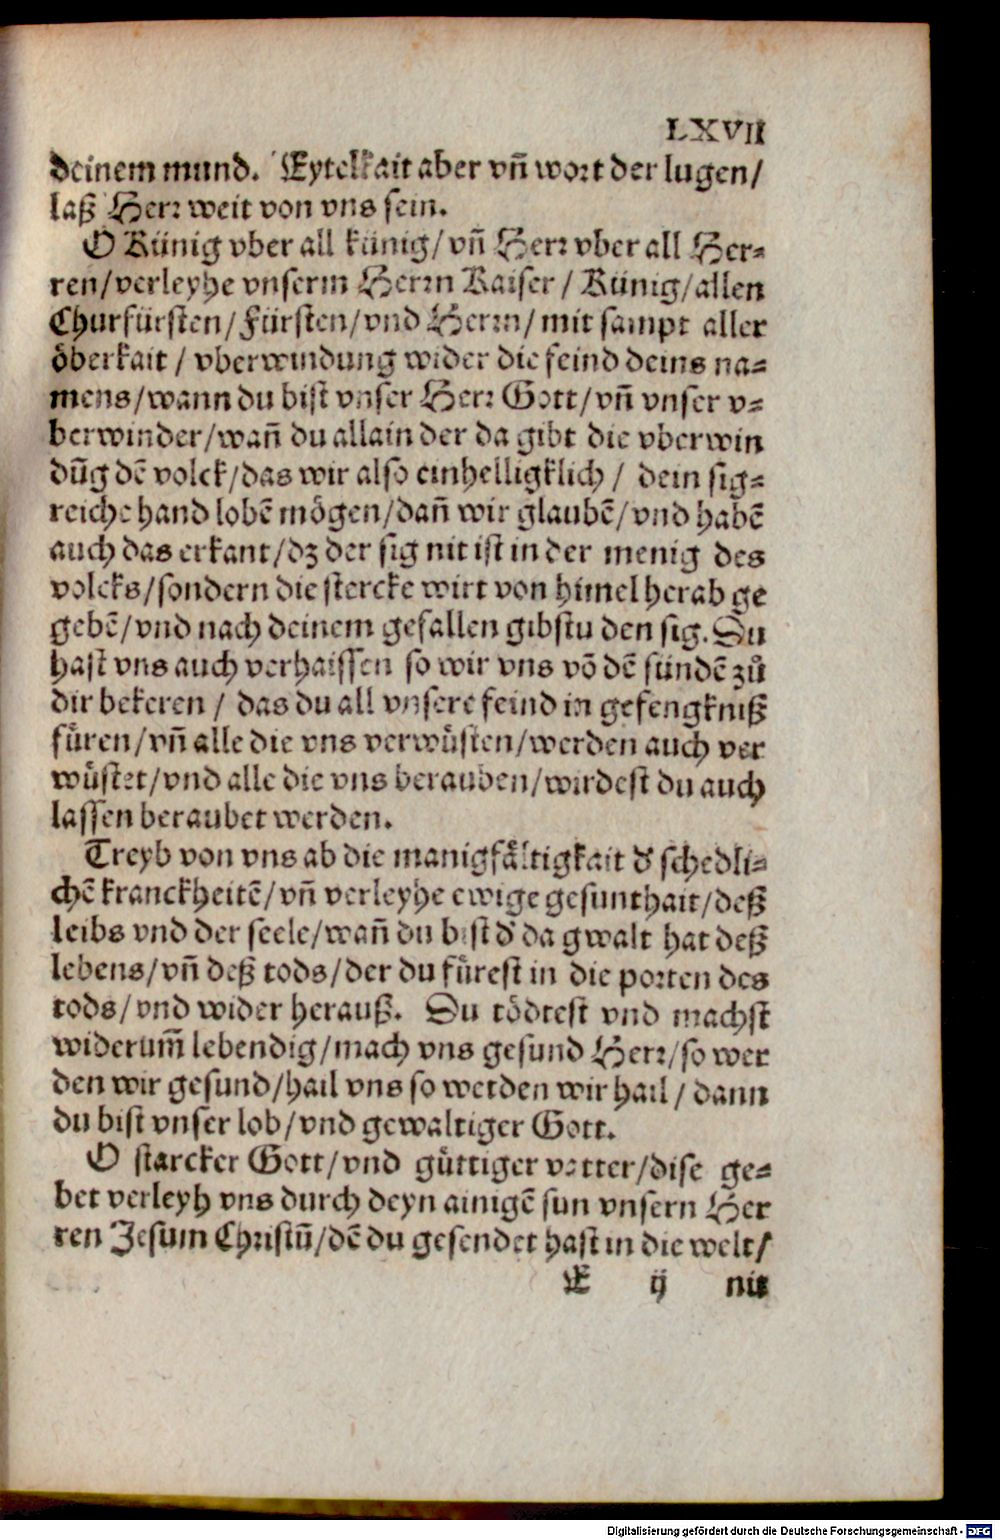 LXVII
deinem mund. Eytelkait aber vñ wort der lugen/
laß Herr weit von vns sein.
O Künig vber all künig/vñ Herr vber all Her-
ren/verleyhe vnserm Herrn Kaiser / Künig/allen
Churfürsten/Fürsten/vnd Herrn/mit sampt aller
öberkait / vberwindung wider die feind deins na-
mens/wann du bist vnser Herr Gott/vñ vnser v-
berwinder/wañ du allain der da gibt die vberwin
dũg dẽ volck/das wir also einhelligklich / dein sig-
reiche hand lobẽ mögen/dañ wir glaubẽ/vnd habẽ
auch das erkant/dz der sig nit ist in der menig des
volcks/sondern die stercke wirt von himel herab ge
gebẽ/vnd nach deinem gefallen gibstu den sig. Du
hast vns auch verhaissen so wir vns võ dẽ sündẽ zů
dir bekeren / das du all vnsere feind in gefengkniß
fuͤren/vñ alle die vns verwuͤsten/werden auch ver
wuͤstet/vnd alle die vns berauben/wirdest du auch
lassen beraubet werden.
Treyb von vns ab die manigfaͤltigkait d' schedli-
chẽ kranckheitẽ/vñ verleyhe ewige gesunthait/deß
leibs vnd der seele/wañ du bist d' da gwalt hat deß
lebens/vñ deß tods/der du fuͤrest in die porten des
tods/vnd wider herauß. Du tödtest vnd machst
widerum̃ lebendig/mach vns gesund Herr/so wer
den wir gesund/hail vns so werden wir hail / dann
du bist vnser lob/vnd gewaltiger Gott.
O starcker Gott/vnd guͤttiger vatter/dise ge-
bet verleyh vns durch deyn ainigẽ sun vnsern Her
ren Jesum Christũ/dẽ du gesendet hast in die welt/
K ij nit
Digitalisierung gefördert durch die Deutsche Forschungsgemeinschaft - DFG